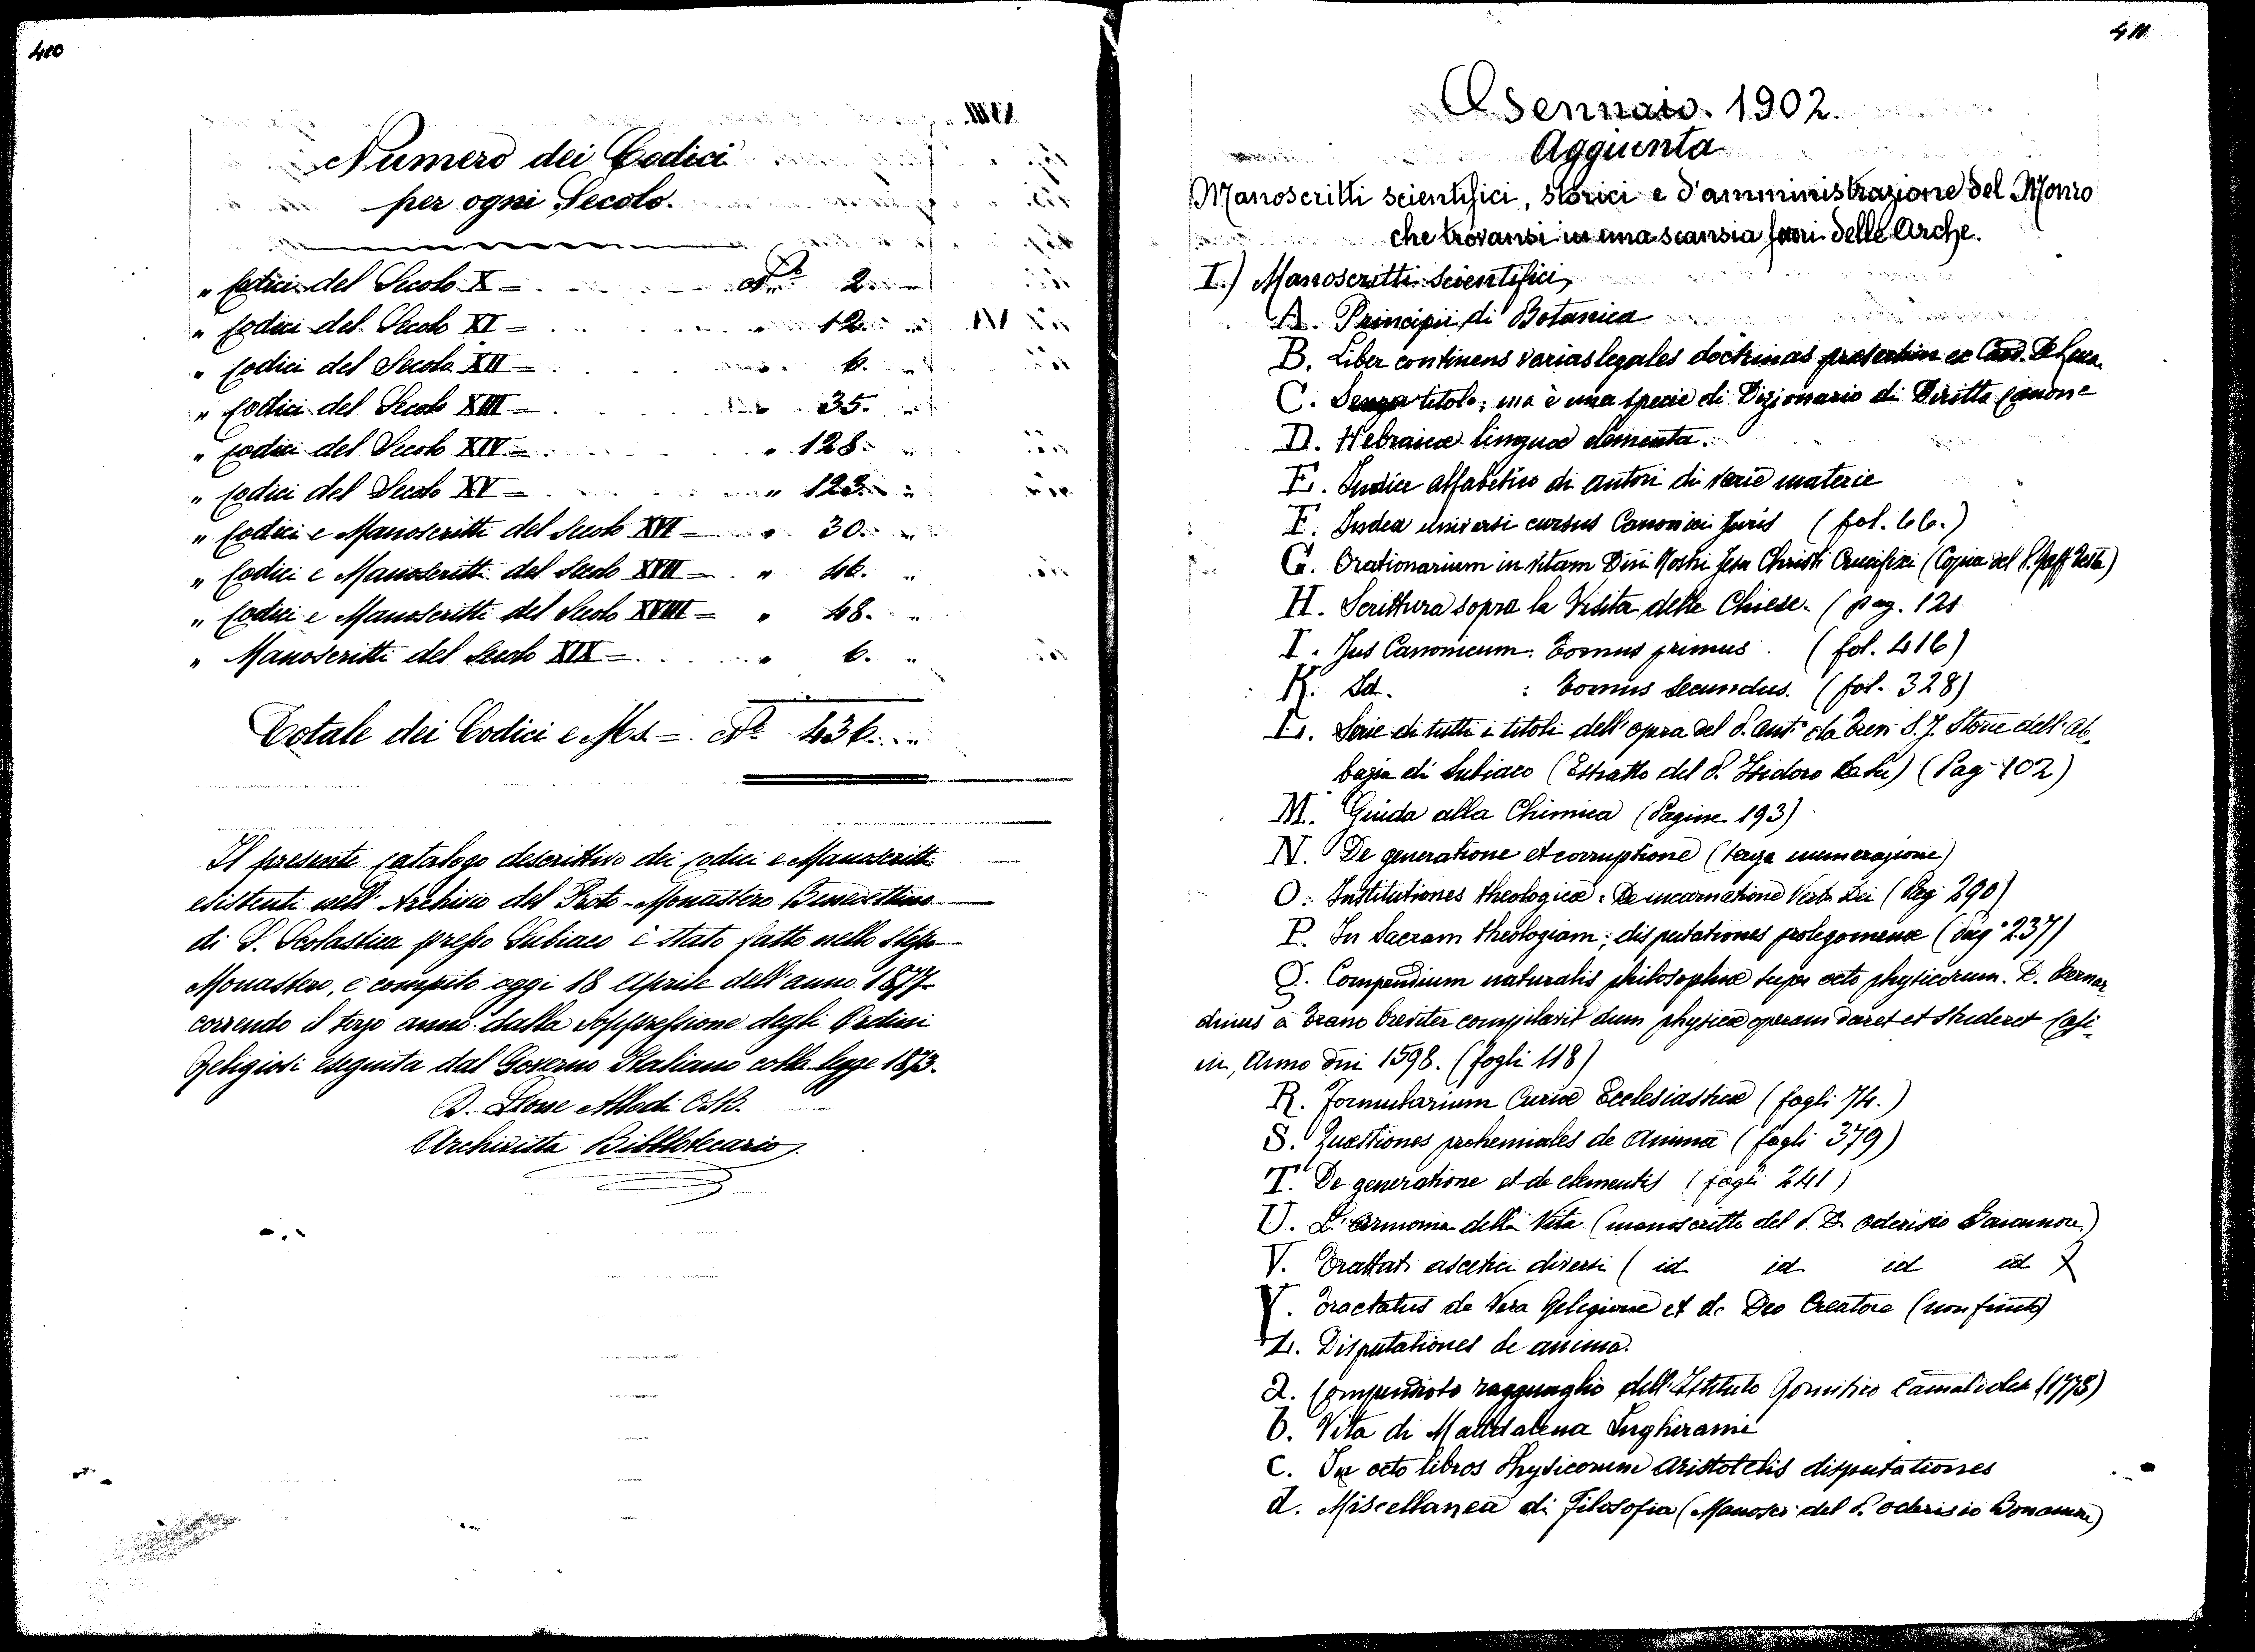 410
Numero dei Codici
per ogni Secolo.
" Codici del Secolo X = . . . N.° 2.
" Codici del Secolo XI = . . . " 12. "
" Codici del Secolo XII = . . . 6. "
" Codici del Secolo XIII = . . . 35. "
" Codici del Secolo XIV = . . . " 128. "
" Codici del Secolo XV = . . . " 123. "
" Codici e Manoscritti del Secolo XVI = " 30. "
" Codici e Manoscritti del Secolo XVII = . " 46. "
" Codici e Manoscritti del Secolo XVIII = " 48. "
" Manoscritti del Secolo XIX = . . . " 6. "
Totale dei Codici e Ms. = N.° 436. "
Il presente catalogo descrittivo dei codici e Manoscritti
esistenti nell' Archivio del Proto-Monastero Benedettino
di S. Scolastica presso Subiaco è stato fatto nello stesso
Monastero, e compito oggi 18 Aprile dell'anno 1877
correndo il terzo anno dalla soppressione degli Ordini
Religiosi eseguita dal Governo Italiano colla legge 1873.
D. Leone Allodi O.S.B.
Archivista Bibliotecario
411
Gennaio. 1902.
Aggiunta
Manoscritti scientifici, storici e d'amministrazione del Monro
che trovansi in una scansia fuori delle Arche.
I.) Manoscritti scientifici
A. Principii di Botanica
B. Liber continens varias legales doctrinas presertim ex Card. De Luca
C. Senza titolo; ma è una specie di Dizionario di Diritto canone
D. Hebraicæ linguæ elementa.
E. Indice alfabetico di autori di varie materie
F. Index universi cursus Canonici Juris (fol. 66.)
G. Orationarium in vitam Dñi Nostri Jesu Christi Crucifixi (Copia del P. Testa)
H. Scrittura sopra la Visita delle Chiese. (pag. 121
I. Jus Canonicum. Tomus primus. (fol. 416)
K. Id. : Tomus secundus. (fol. 328)
L. Serie di tutti i titoli dell'opera del P. Ant.° da S. J. Storie dell'Ab-
bazia di Subiaco (Estratto del P. Isidoro) (Pag 102)
M. Guida alla Chimica (Pagine 193)
N. De generatione et corruptione (senza numerazione)
O. Institutiones theologicæ: De incarnatione Verbi Dei (Pag 290)
P. In Sacram theologiam; disputationes prolegomenæ (Pag. 237)
Q. Compendium naturalis philosophiæ super octo physicorum. D. Bernar-
dinus à Trano breviter compilavit dum physicæ operam daret et studeret Cassi-
ni, Anno Dñi 1598. (fogli 118)
R. Formularium Curiæ Ecclesiasticæ (fogli 74.)
S. Quæstiones prohemiales de Anima (fogli 379)
T. De generatione et de elementis (fogli 241)
U. L'Armonia della Vita (manoscritto del P. D. Oderisio)
V. Trattati ascetici diversi (id id id id)
Y. Tractatus de Vera Religione et de Deo Creatore (non finito)
Z. Disputationes de anima.
a. Compendioso ragguaglio dell'Istituto Romitico Camaldolese (1778)
b. Vita di Maddalena Inghirami
c. In octo libros Physicorum Aristotelis disputationes
d. Miscellanea di Filosofia (Manoscr. del P. Oderisio)